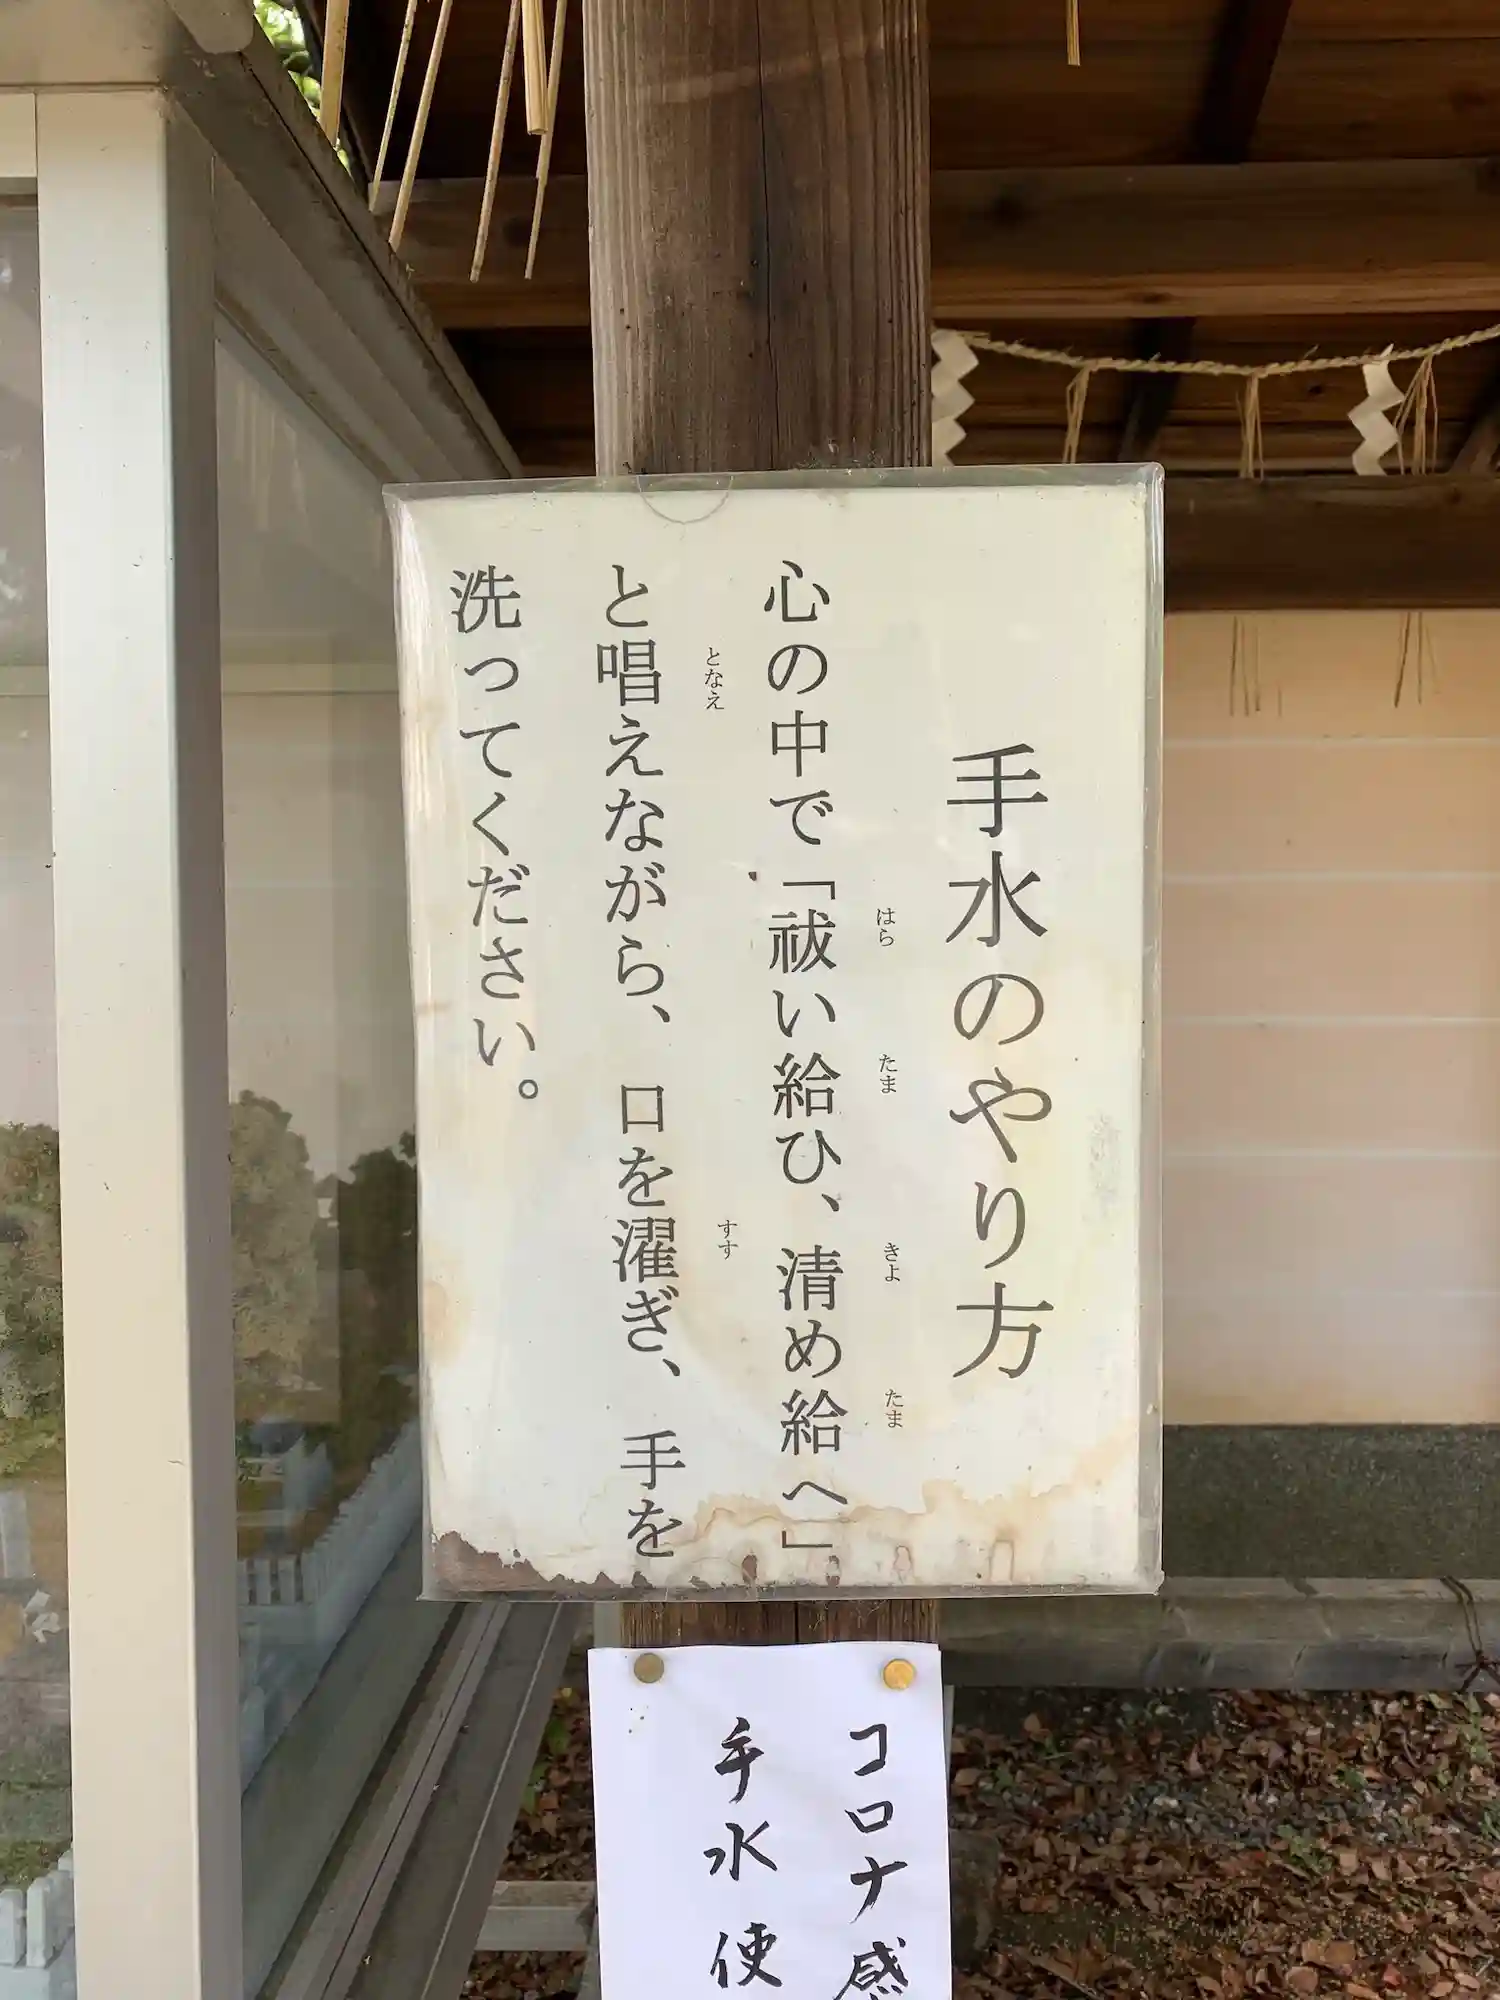 手水のやり方
心の中で「祓い給ひ、清め給へ」
はら たま きよ たま
と唱えながら、口を濯ぎ、手を
となえ すす
洗ってください。
コロナ感
手水使